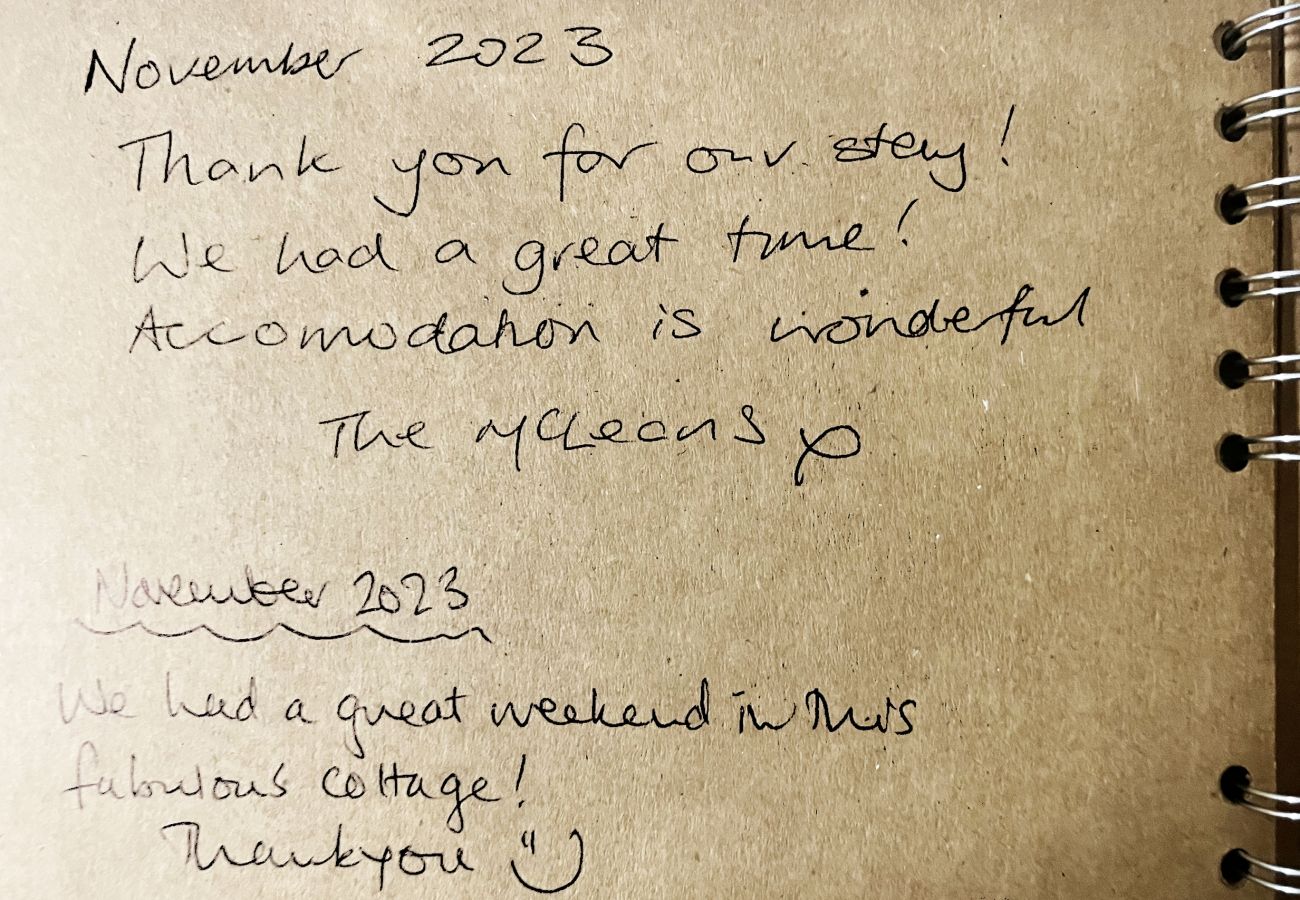 November 2023
Thank you for our stay!
We had a great time!
Accomodation is wonderful
The McLeans x
November 2023
We had a great weekend in this
fabulous cottage!
Thankyou :)